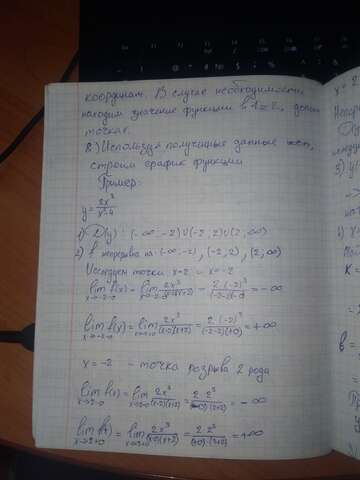 координат. В случае необходимости
находим значение функции в
точках.
8.) Используя полученные данные
строим график функции
Пример:
y = 2x³/(x²-4)
1) D(y): (-∞, -2)∪(-2, 2)∪(2, ∞)
2) непрерывна на: (-∞, -2), (-2, 2), (2, ∞)
Исследуем точки x=2 и x=-2
lim x→-2-0 f(x) = lim x→-2-0 2x³/((x-2)(x+2)) = 2·(-2)³/((-2-2)(-0)) = -∞
lim f(x) = lim 2x³/((x-2)(x+2)) = 2·(-2)³/((-2-2)(+0)) = +∞
x = -2 - точка разрыва 2 рода
lim x→2-0 f(x) = lim x→2-0 2x³/((x-2)(x+2)) = 2·2³/((-0)·(2+2)) = -∞
lim x→2+0 f(x) = lim x→2+0 2x³/((x-2)(x+2)) = 2·2³/((+0)·(2+2)) = +∞